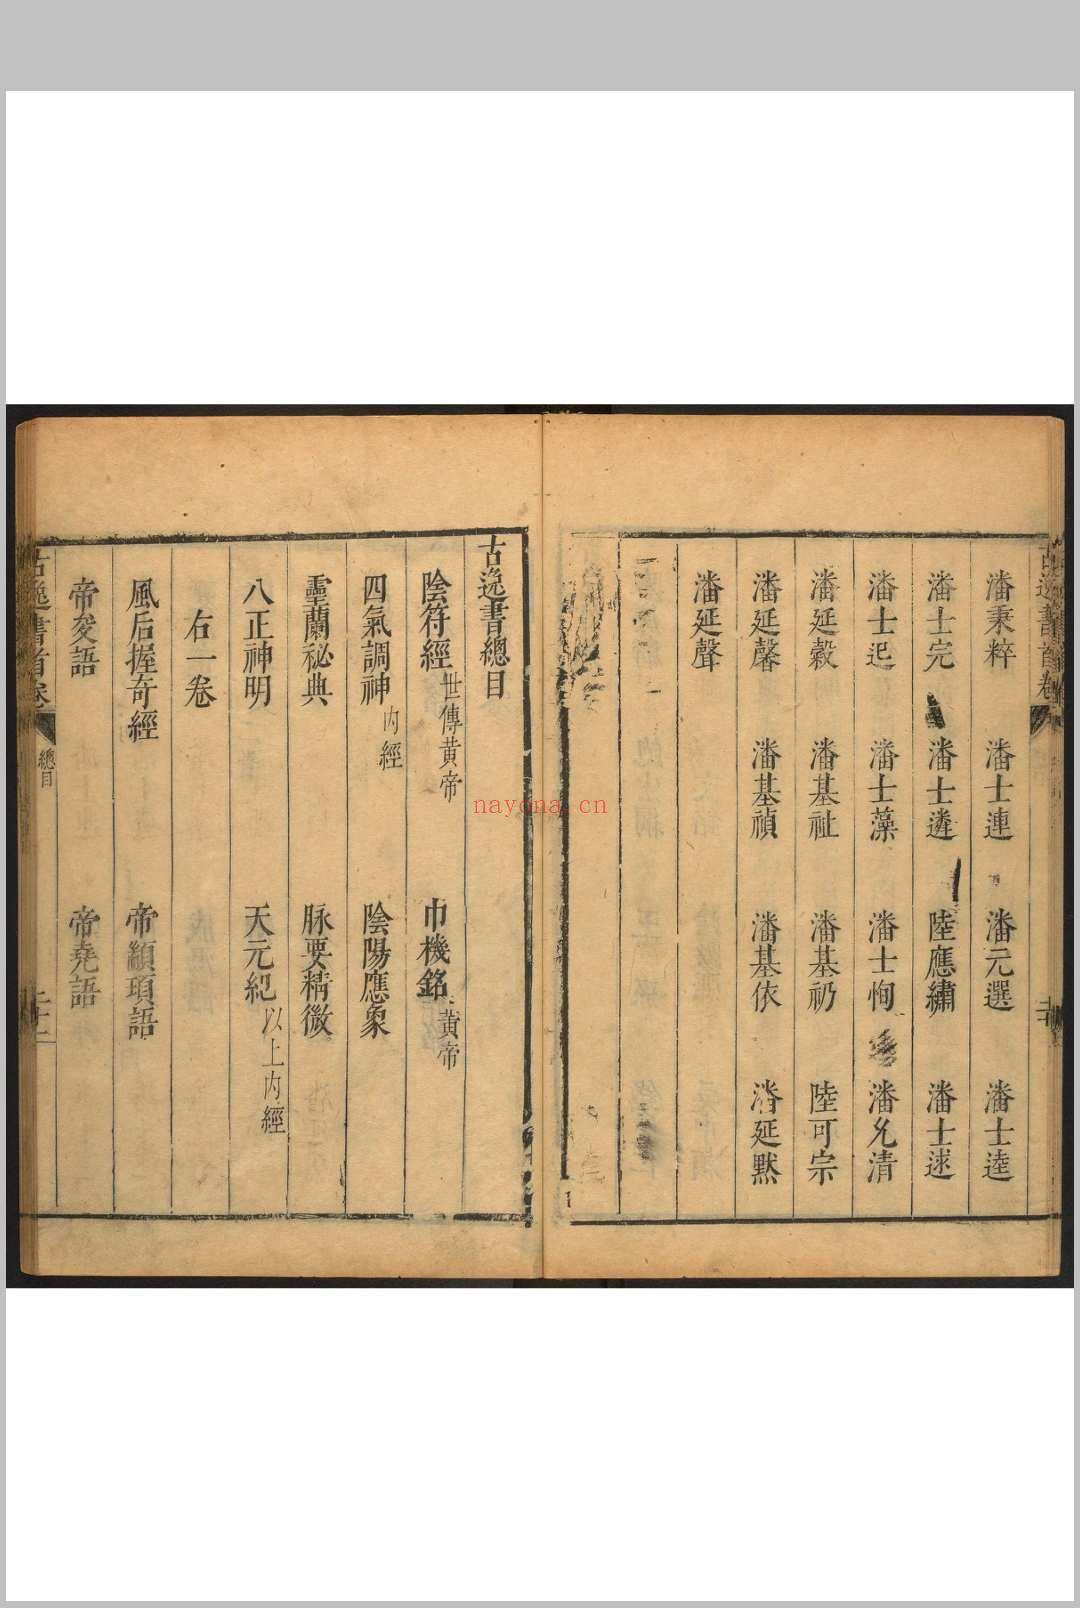 古逸書首卷
潘秉粹 潘士連 潘元選 潘士逵
潘士完 潘士遴 陸應繡 潘士逑
潘士汜 潘士藻 潘士恂 潘允清
潘延穀 潘基祉 潘基礽 陸可宗
潘延馨 潘基禎 潘基依 潘延默
潘延聲
古逸書總目
陰符經 世傳黃帝 巾機銘 黃帝
四氣調神 內經 陰陽應象
靈蘭秘典 脉要精微
八正神明 天元紀 以上內經
右一卷
風后握奇經 帝顓頊語
帝夋語 帝堯語
古逸書首卷 總目 二十二
nayona.cn